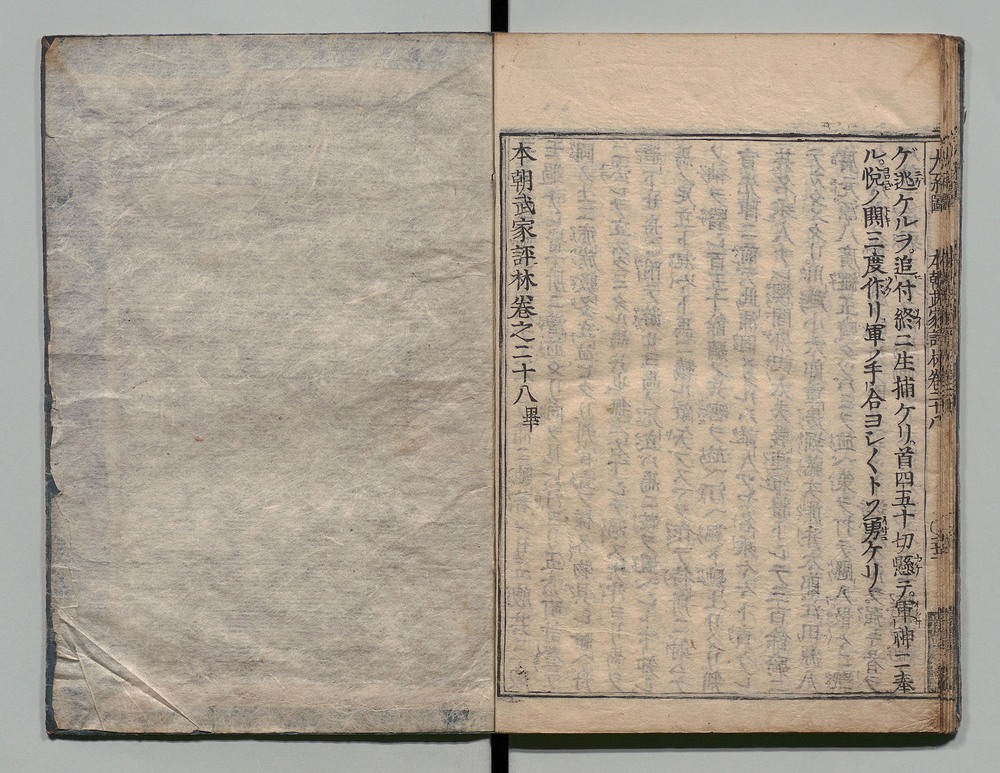 本朝武家評林巻二十八
ゲ逃ケルヲ。追付終ニ生捕ケリ。首四五十切懸テ。軍神ニ奉
ル。悦ノ鬨三度作リ。軍ノ手合ヨシ〱トソ勇ケリ。
本朝武家評林巻之二十八畢